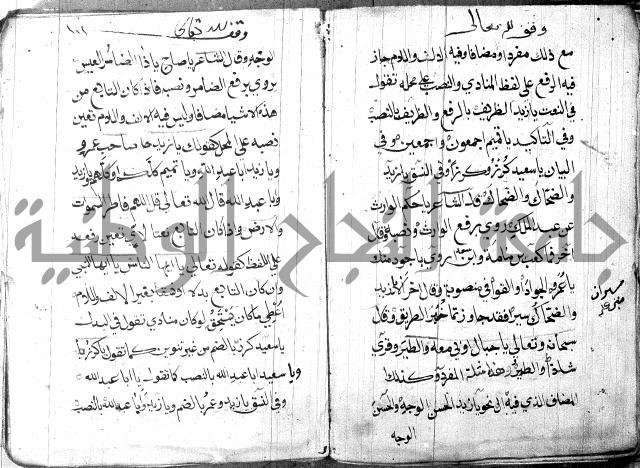 وقف لله تعالى
مع ذلك مفردا ومضافا وفيه الالف واللام جاز
فيه الرفع على لفظ المنادي والنصب على محله تقول
في النعت يا زيد الظريف بالرفع والظريف بالنصب
وفي التأكيد يا تميم اجمعون واجمعين وفي
البيان يا سعيد كرز وكرزا وفي النسق يا زيد
والضحاك والضحاك قال الشاعر يا حكم الوارث
عن عبد الملك روي برفع الوارث ونصبه وقال
آخر فما كعب بن مامة وابن روي يا جود منك
يا عمر الجواد القوافي منصوبة وقال آخر الا يا زيد
والضحاك سيرا فقد جاوزتما خمر الطريق وقال
سبحانه وتعالى يا جبال اوبي معه والطير وقري
شاذا والطير وهذه امثلة المفرد وكذلك
المضاف الذي فيه ال نحو يا زيد الحسن الوجه والحسن
الوجه
وقف لله تعالى
الوجه وقال الشاعر يا صاح يا ذا الضامر العيس
يروي برفع الضامر ونصبه فاذا كان التابع من
هذه الاشياء مضافا وليس فيه الالف واللام تعين
نصبه على المحل كقولك يا زيد صاحب عمرو
ويا زيد ابا عبد الله ويا تميم كلكم او كلهم ويا زيد
وابا عبد الله قال الله تعالى قل اللهم فاطر السموات
والارض واذا كان التابع نعتا لاي تعين رفعه
على اللفظ كقوله تعالى يا ايها الناس يا ايها النبي
وان كان التابع بدلا او نسقا بغير الالف واللام
اعطي ما كان يستحقه لو كان منادي تقول في البدل
يا سعيد كرز بالضم من غير تنوين كما تقول يا كرز
ويا سعيد ابا عبد الله بالنصب كما تقول يا ابا عبد الله
وفي النسق يا زيد وعمر بالضم ويا زيد وابا عبد الله بالنصب
جامعة النجاح الوطنية